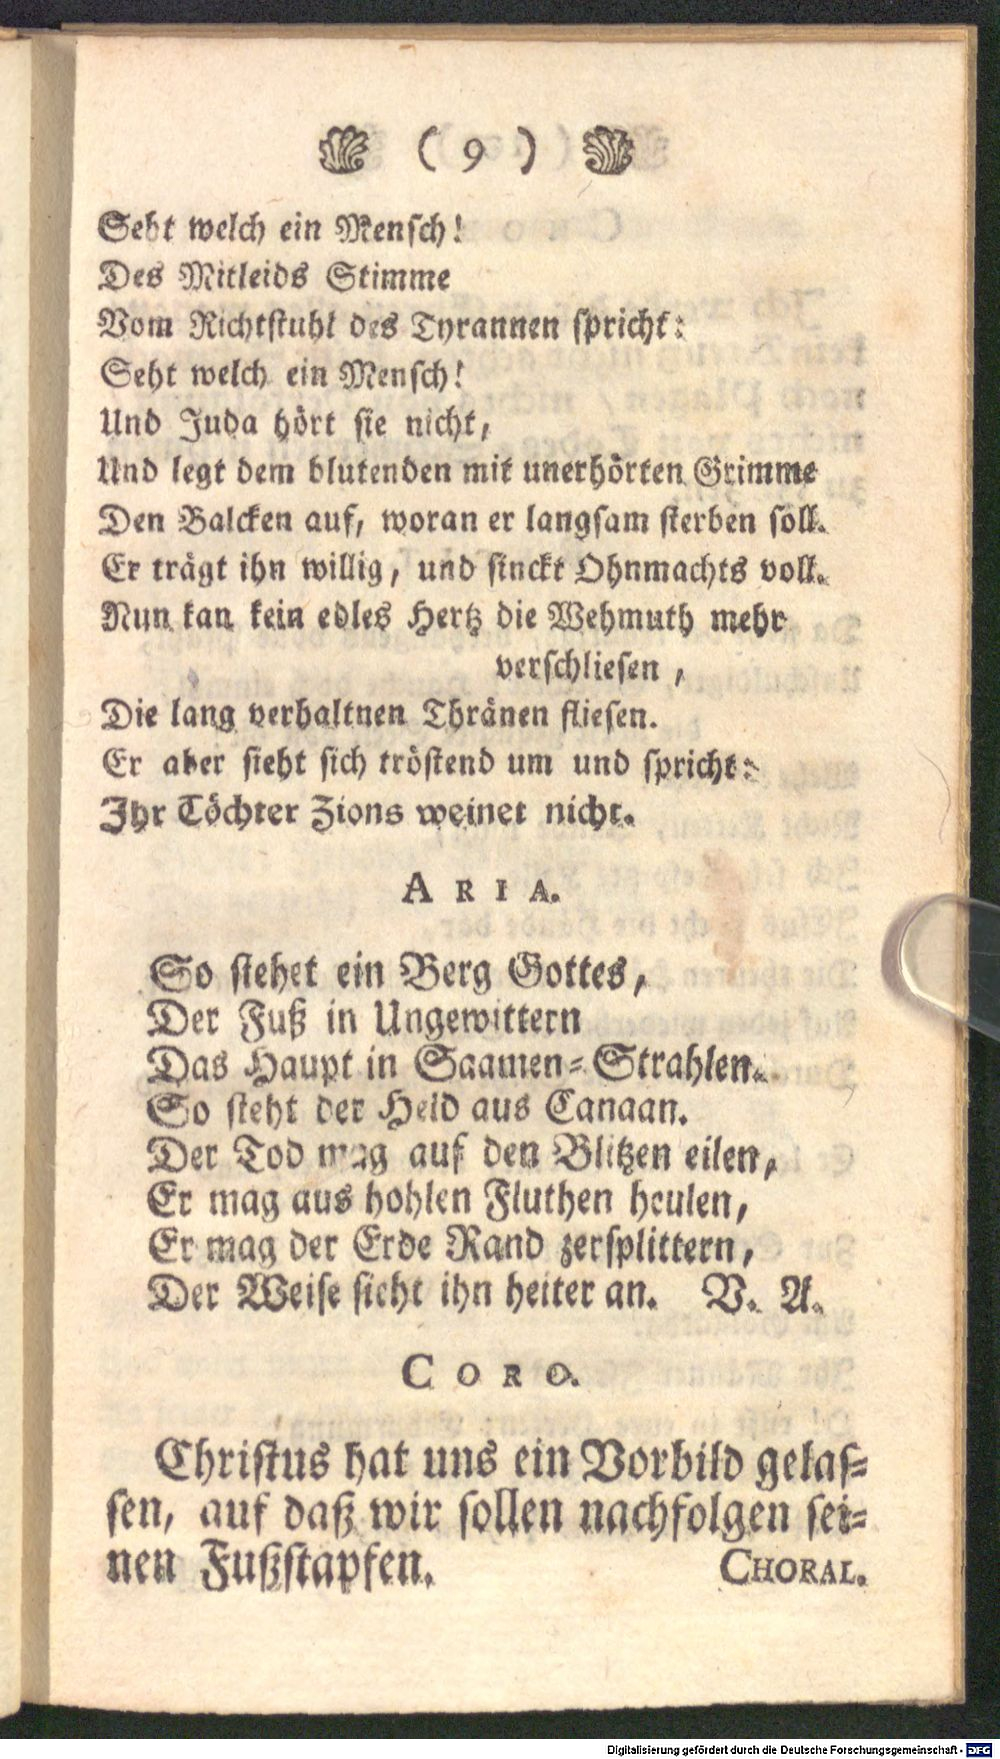 ( 9 )
Seht welch ein Mensch!
Des Mitleids Stimme
Vom Richtstuhl des Tyrannen spricht:
Seht welch ein Mensch!
Und Juda hört sie nicht,
Und legt dem blutenden mit unerhörten Grimme
Den Balcken auf, woran er langsam sterben soll.
Er trägt ihn willig, und sinckt Ohnmachts voll.
Nun kan kein edles Hertz die Wehmuth mehr
verschliesen,
Die lang verhaltnen Thränen fliesen.
Er aber sieht sich tröstend um und spricht:
Ihr Töchter Zions weinet nicht.
ARIA.
So stehet ein Berg Gottes,
Der Fuß in Ungewittern
Das Haupt in Saamen-Strahlen.
So steht der Held aus Canaan.
Der Tod mag auf den Blitzen eilen,
Er mag aus hohlen Fluthen heulen,
Er mag der Erde Rand zersplittern,
Der Weise sieht ihn heiter an. V. A.
CORO.
Christus hat uns ein Vorbild gelas-
sen, auf daß wir sollen nachfolgen sei-
nen Fußstapfen. CHORAL.
Digitalisierung gefördert durch die Deutsche Forschungsgemeinschaft - DFG